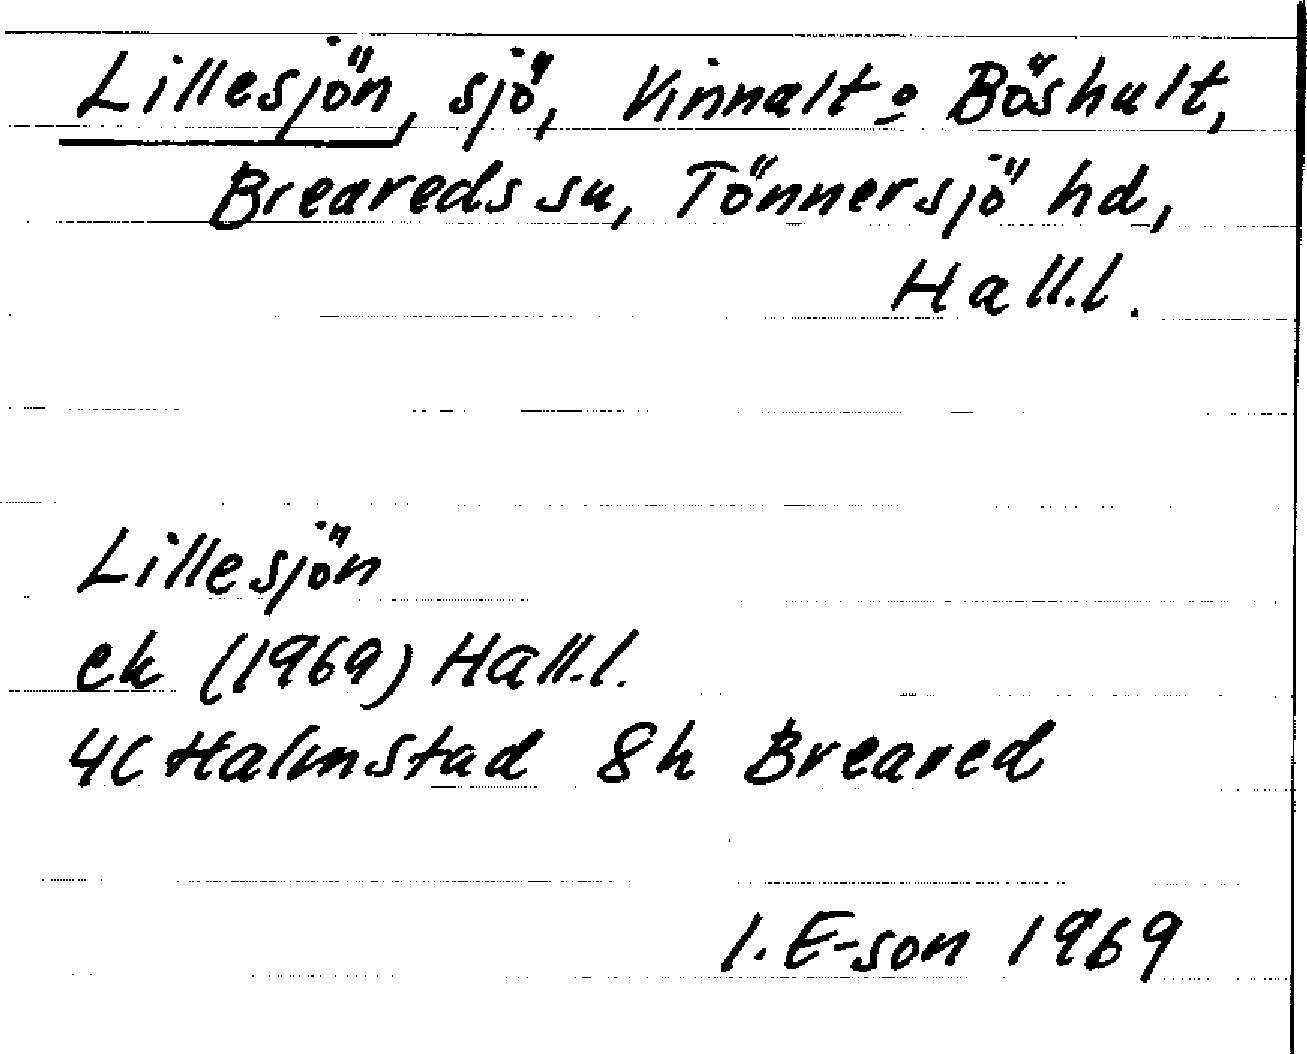 Lillesjön, sjö, Vinnalt o Böshult,
Breareds sn, Tönnersjö hd,
Hall.l.
Lillesjön
ek (1969) Hall.l.
4C Halmstad 8h Breared
I. E-son 1969